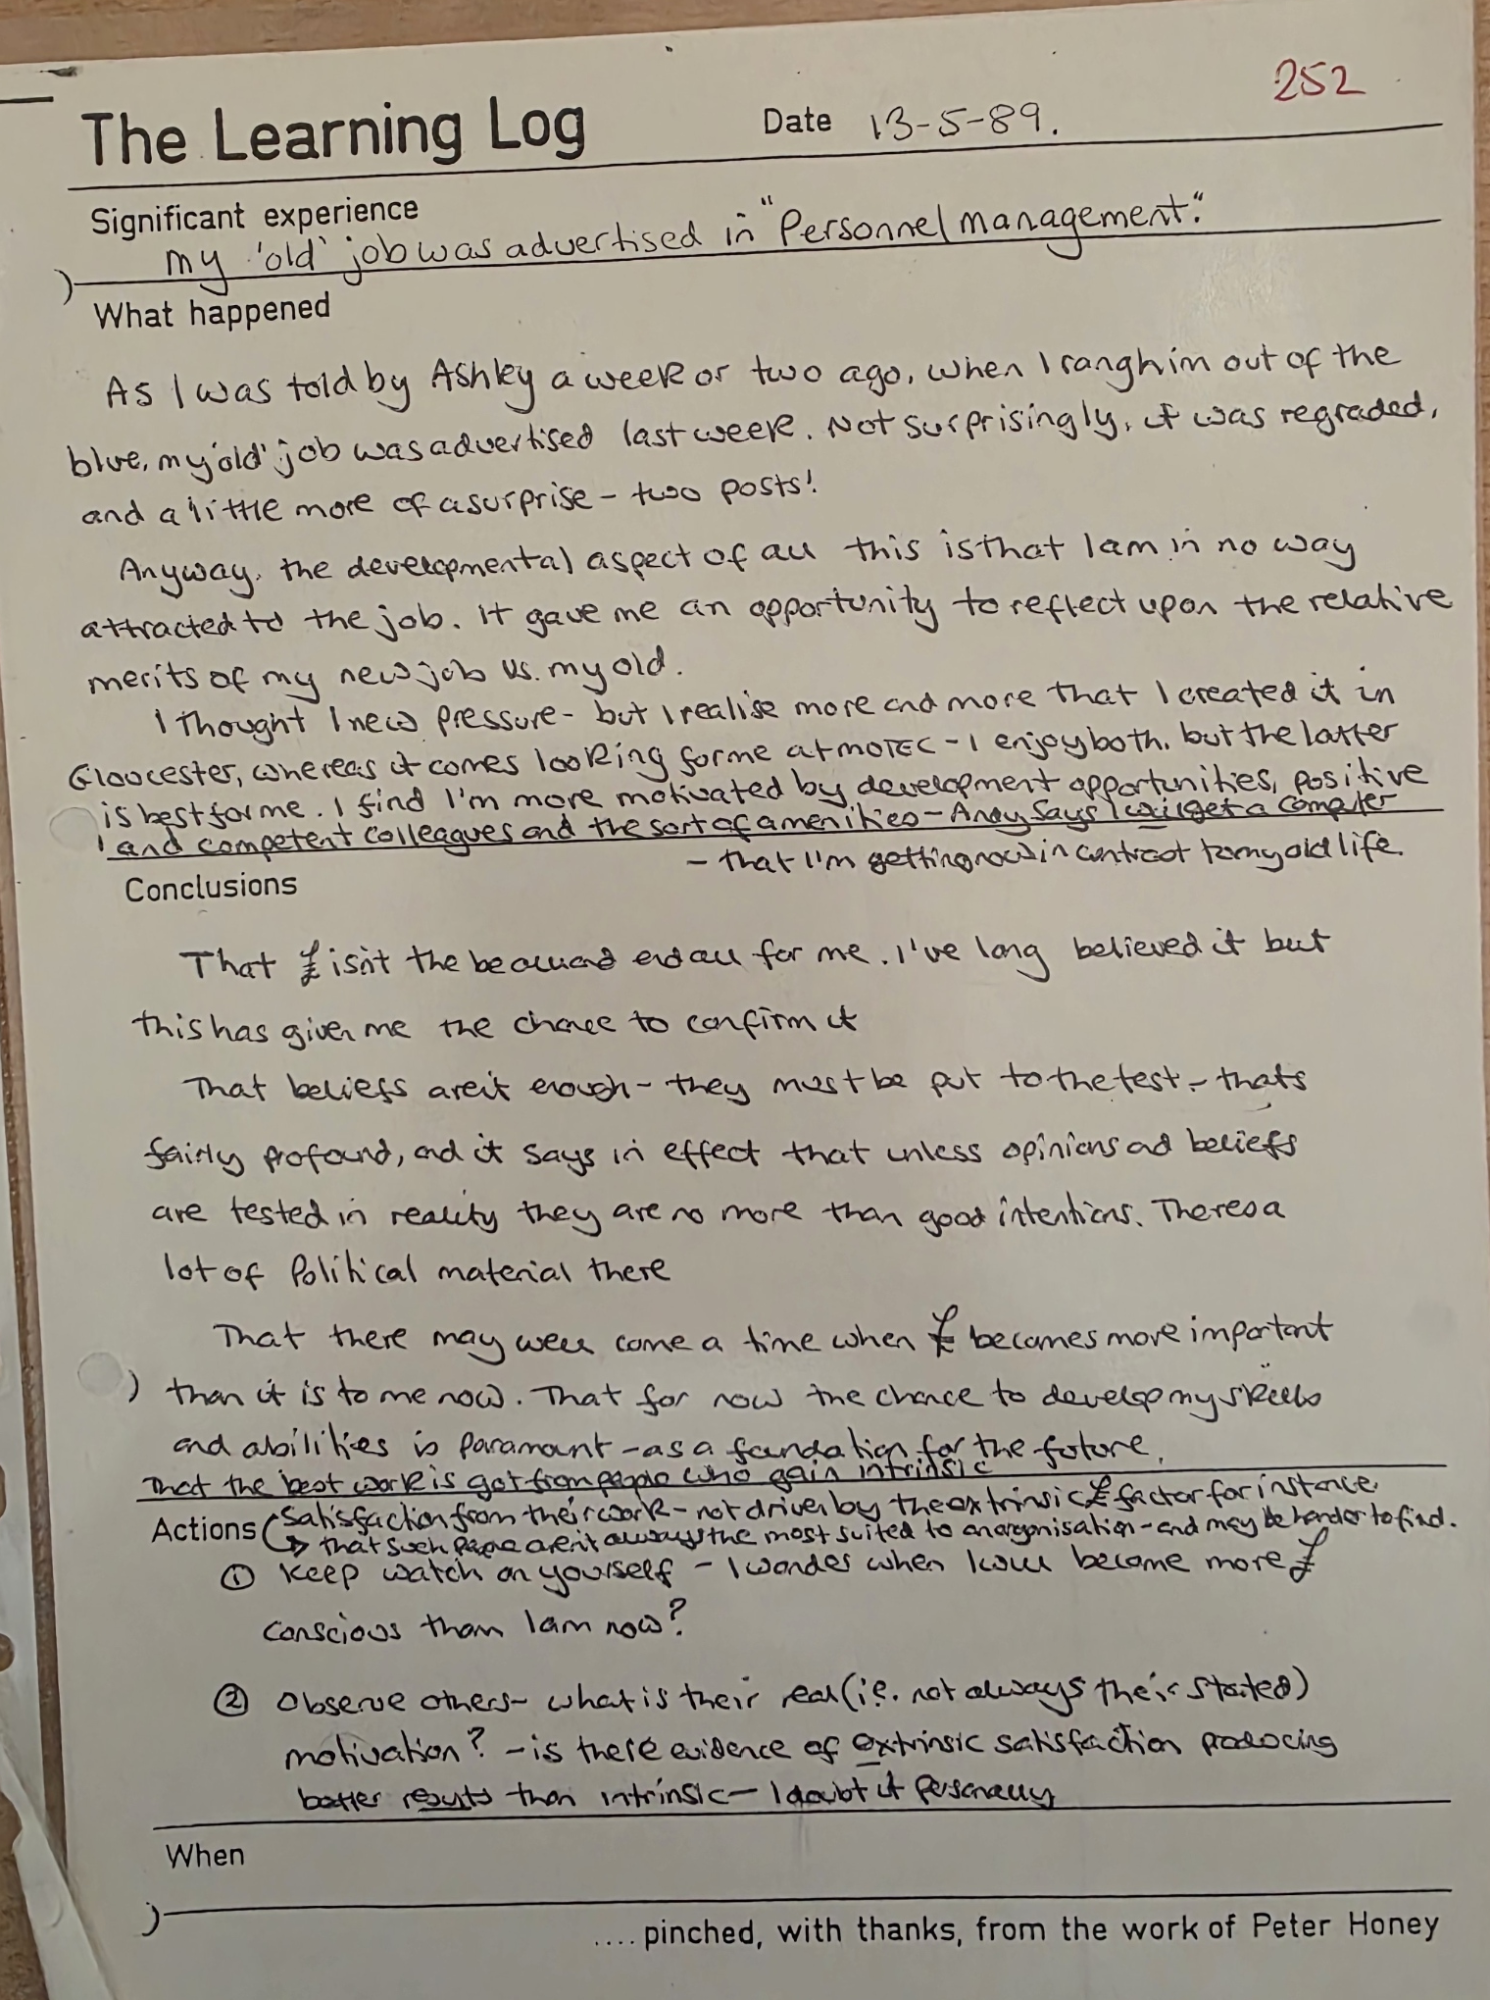 252
The Learning Log
Date 13-5-89.
Significant experience
my 'old' job was advertised in "Personnel management."
What happened
As I was told by Ashley a week or two ago, when I rang him out of the
blue, my 'old' job was advertised last week. Not surprisingly, it was regraded,
and a little more of a surprise - two posts!
Anyway, the developmental aspect of all this is that I am in no way
attracted to the job. It gave me an opportunity to reflect upon the relative
merits of my new job vs. my old.
I thought I new pressure - but I realise more and more that I created it in
Gloucester, whereas it comes looking for me at MOTEC - I enjoy both, but the latter
is best for me. I find I'm more motivated by development opportunities, positive
and competent colleagues and the sort of amenities - Andy says I will get a computer
- that I'm getting now in contrast to my old life.
Conclusions
That £ isn't the be all and end all for me. I've long believed it but
this has given me the chance to confirm it
That beliefs aren't enough - they must be put to the test - thats
fairly profound, and it says in effect that unless opinions and beliefs
are tested in reality they are no more than good intentions. Theres a
lot of Political material there
That there may well come a time when £ becomes more important
than it is to me now. That for now the chance to develop my skills
and abilities is paramount - as a foundation for the future.
That the best work is got from people who gain intrinsic
satisfaction from their work - not driven by the extrinsic £ factor for instance
Actions
that such people aren't always the most suited to an organisation - and may be harder to find.
① Keep watch on yourself - I wonder when I will become more £
conscious than I am now?
② Observe others - what is their real (i.e. not always their stated)
motivation? - is there evidence of extrinsic satisfaction producing
better results than intrinsic - I doubt it personally
When
.... pinched, with thanks, from the work of Peter Honey